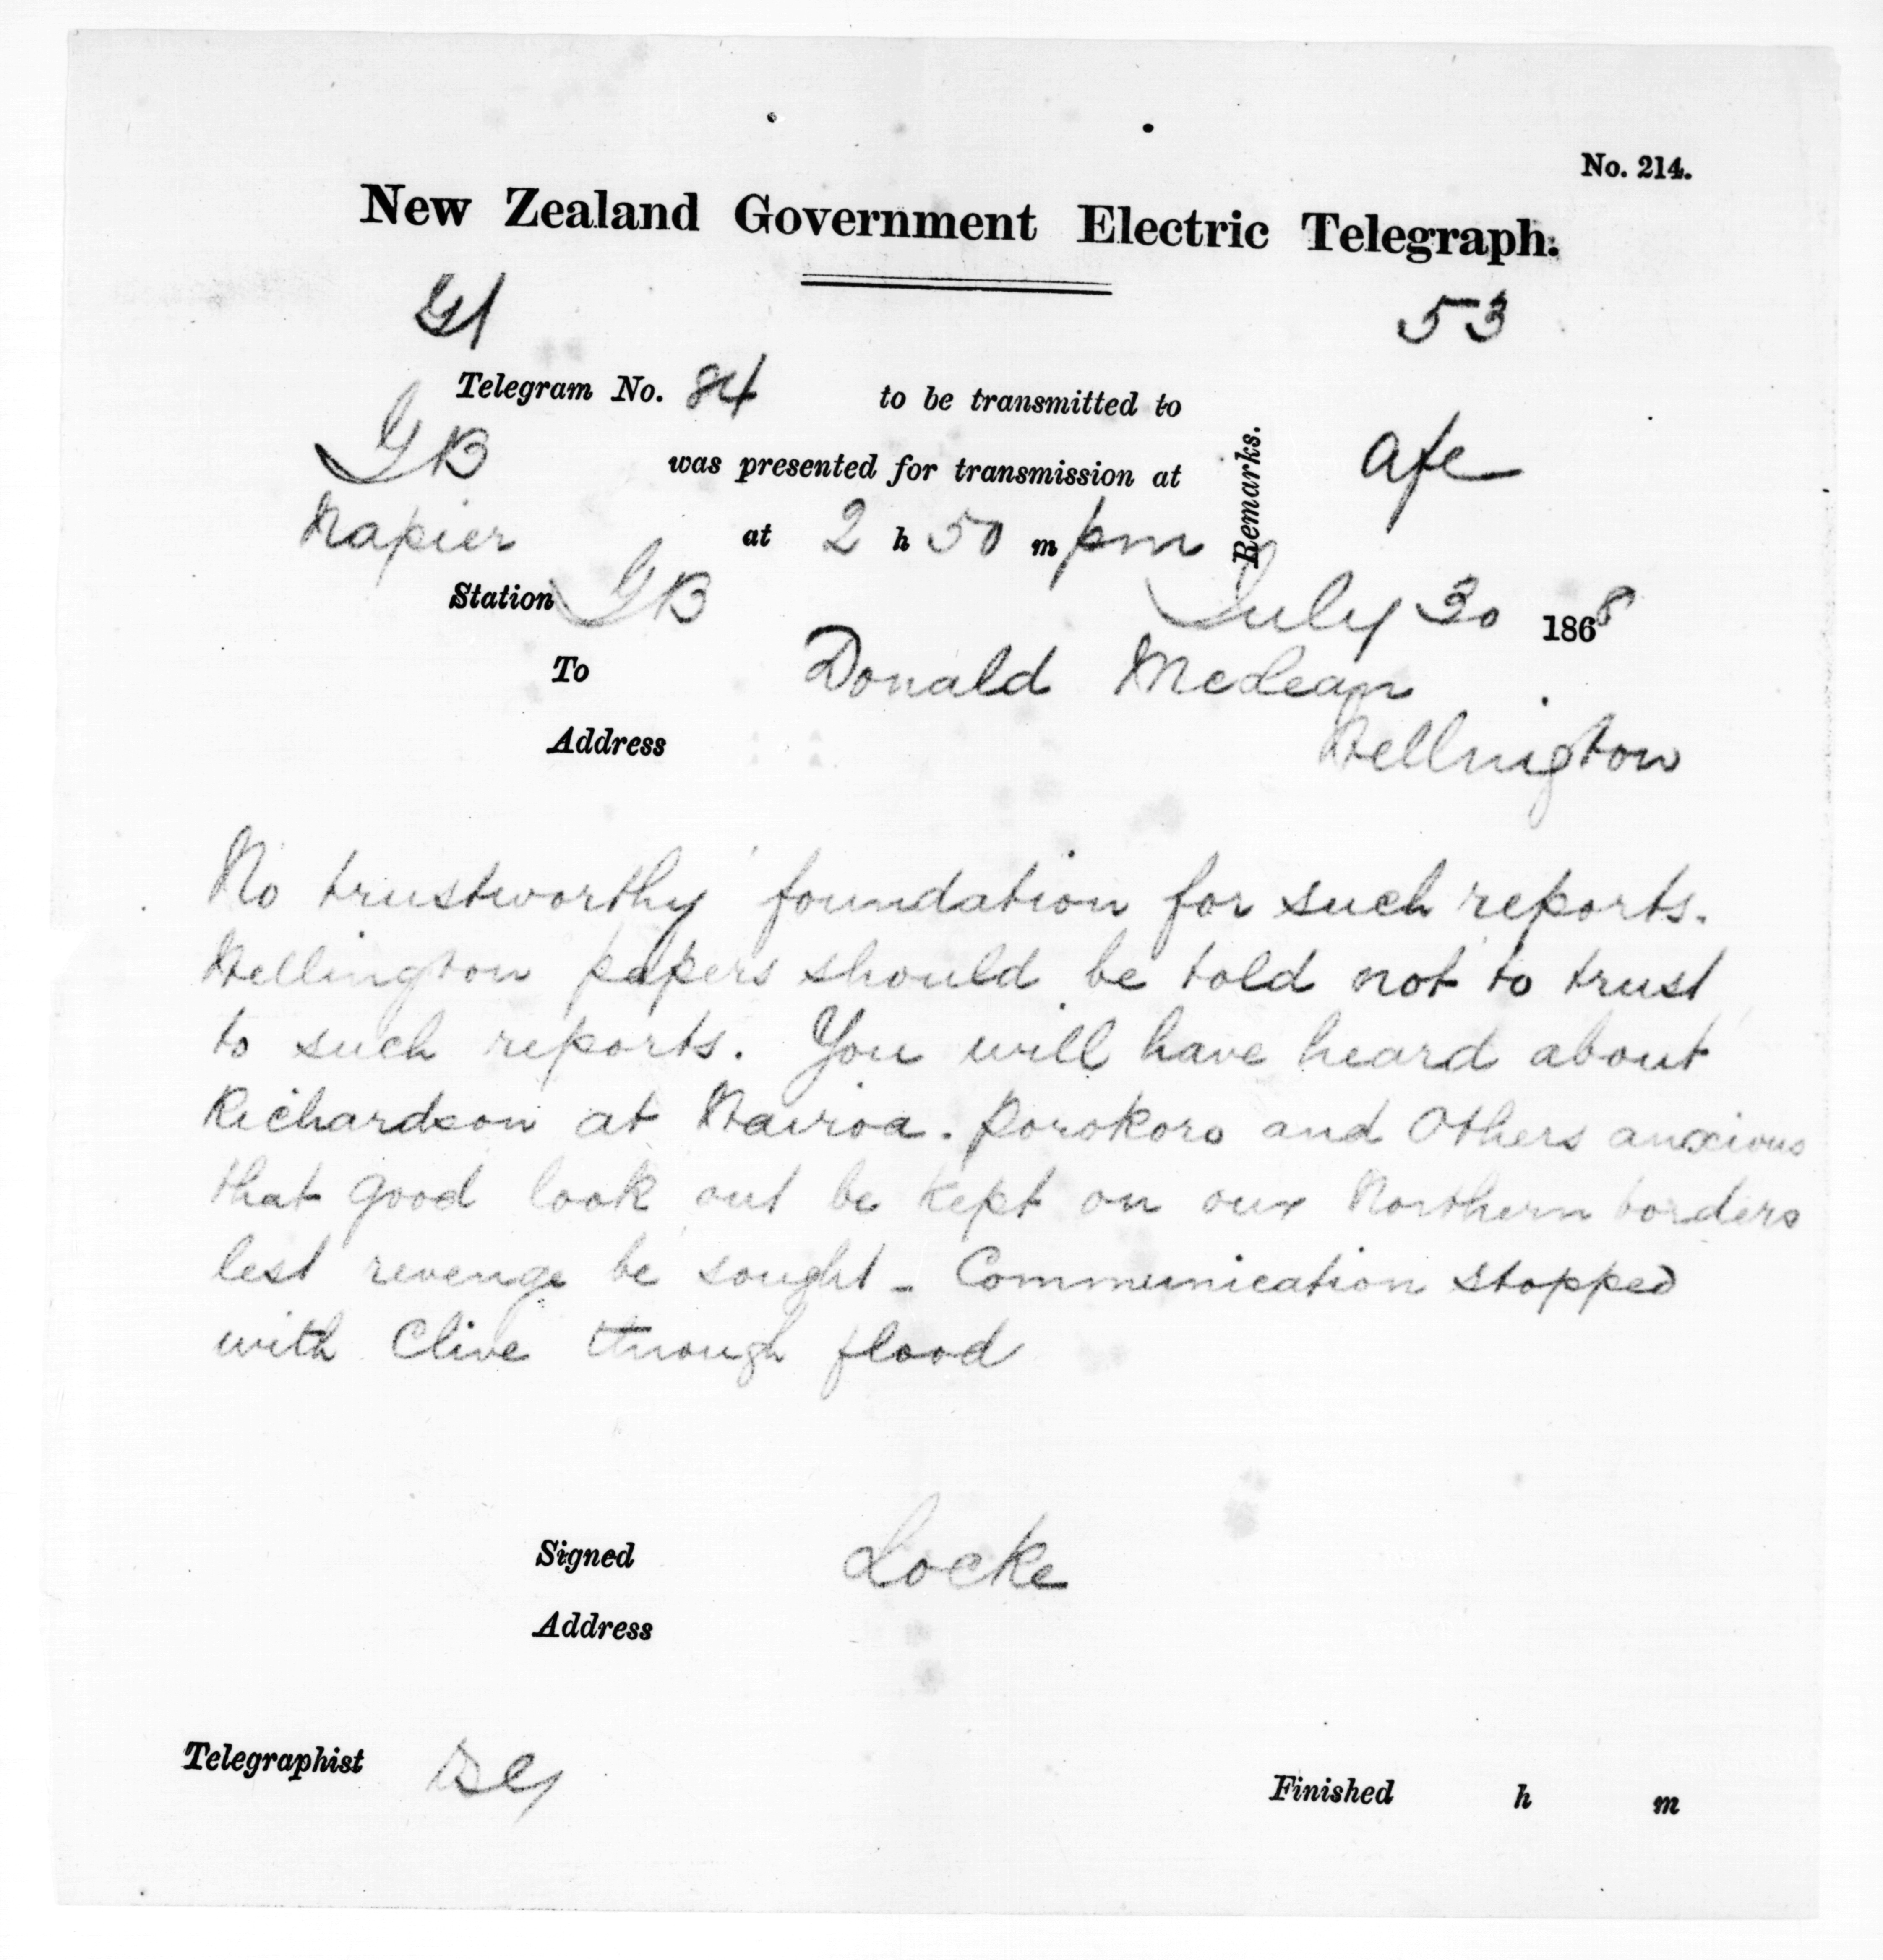 No. 214.
New Zealand Government Electric Telegraph.
53
Telegram No. 84 to be transmitted to
GB was presented for transmission at
Remarks.
Napier at 2 h 50 m pm
Station GB July 30 1868
To Donald McLean
Address Wellington
No trustworthy foundation for such reports.
Wellington papers should be told not to trust
to such reports. You will have heard about
Richardson at Wairoa. Porokoro and Others anxious
that good look out be kept on our Northern borders
lest revenge be sought - Communication stopped
with Clive through flood
Signed Locke
Address
Telegraphist
Finished h m